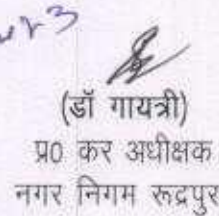 (डॉ गायत्री)
प्र0 कर अधीक्षक
नगर निगम रूद्रपुर